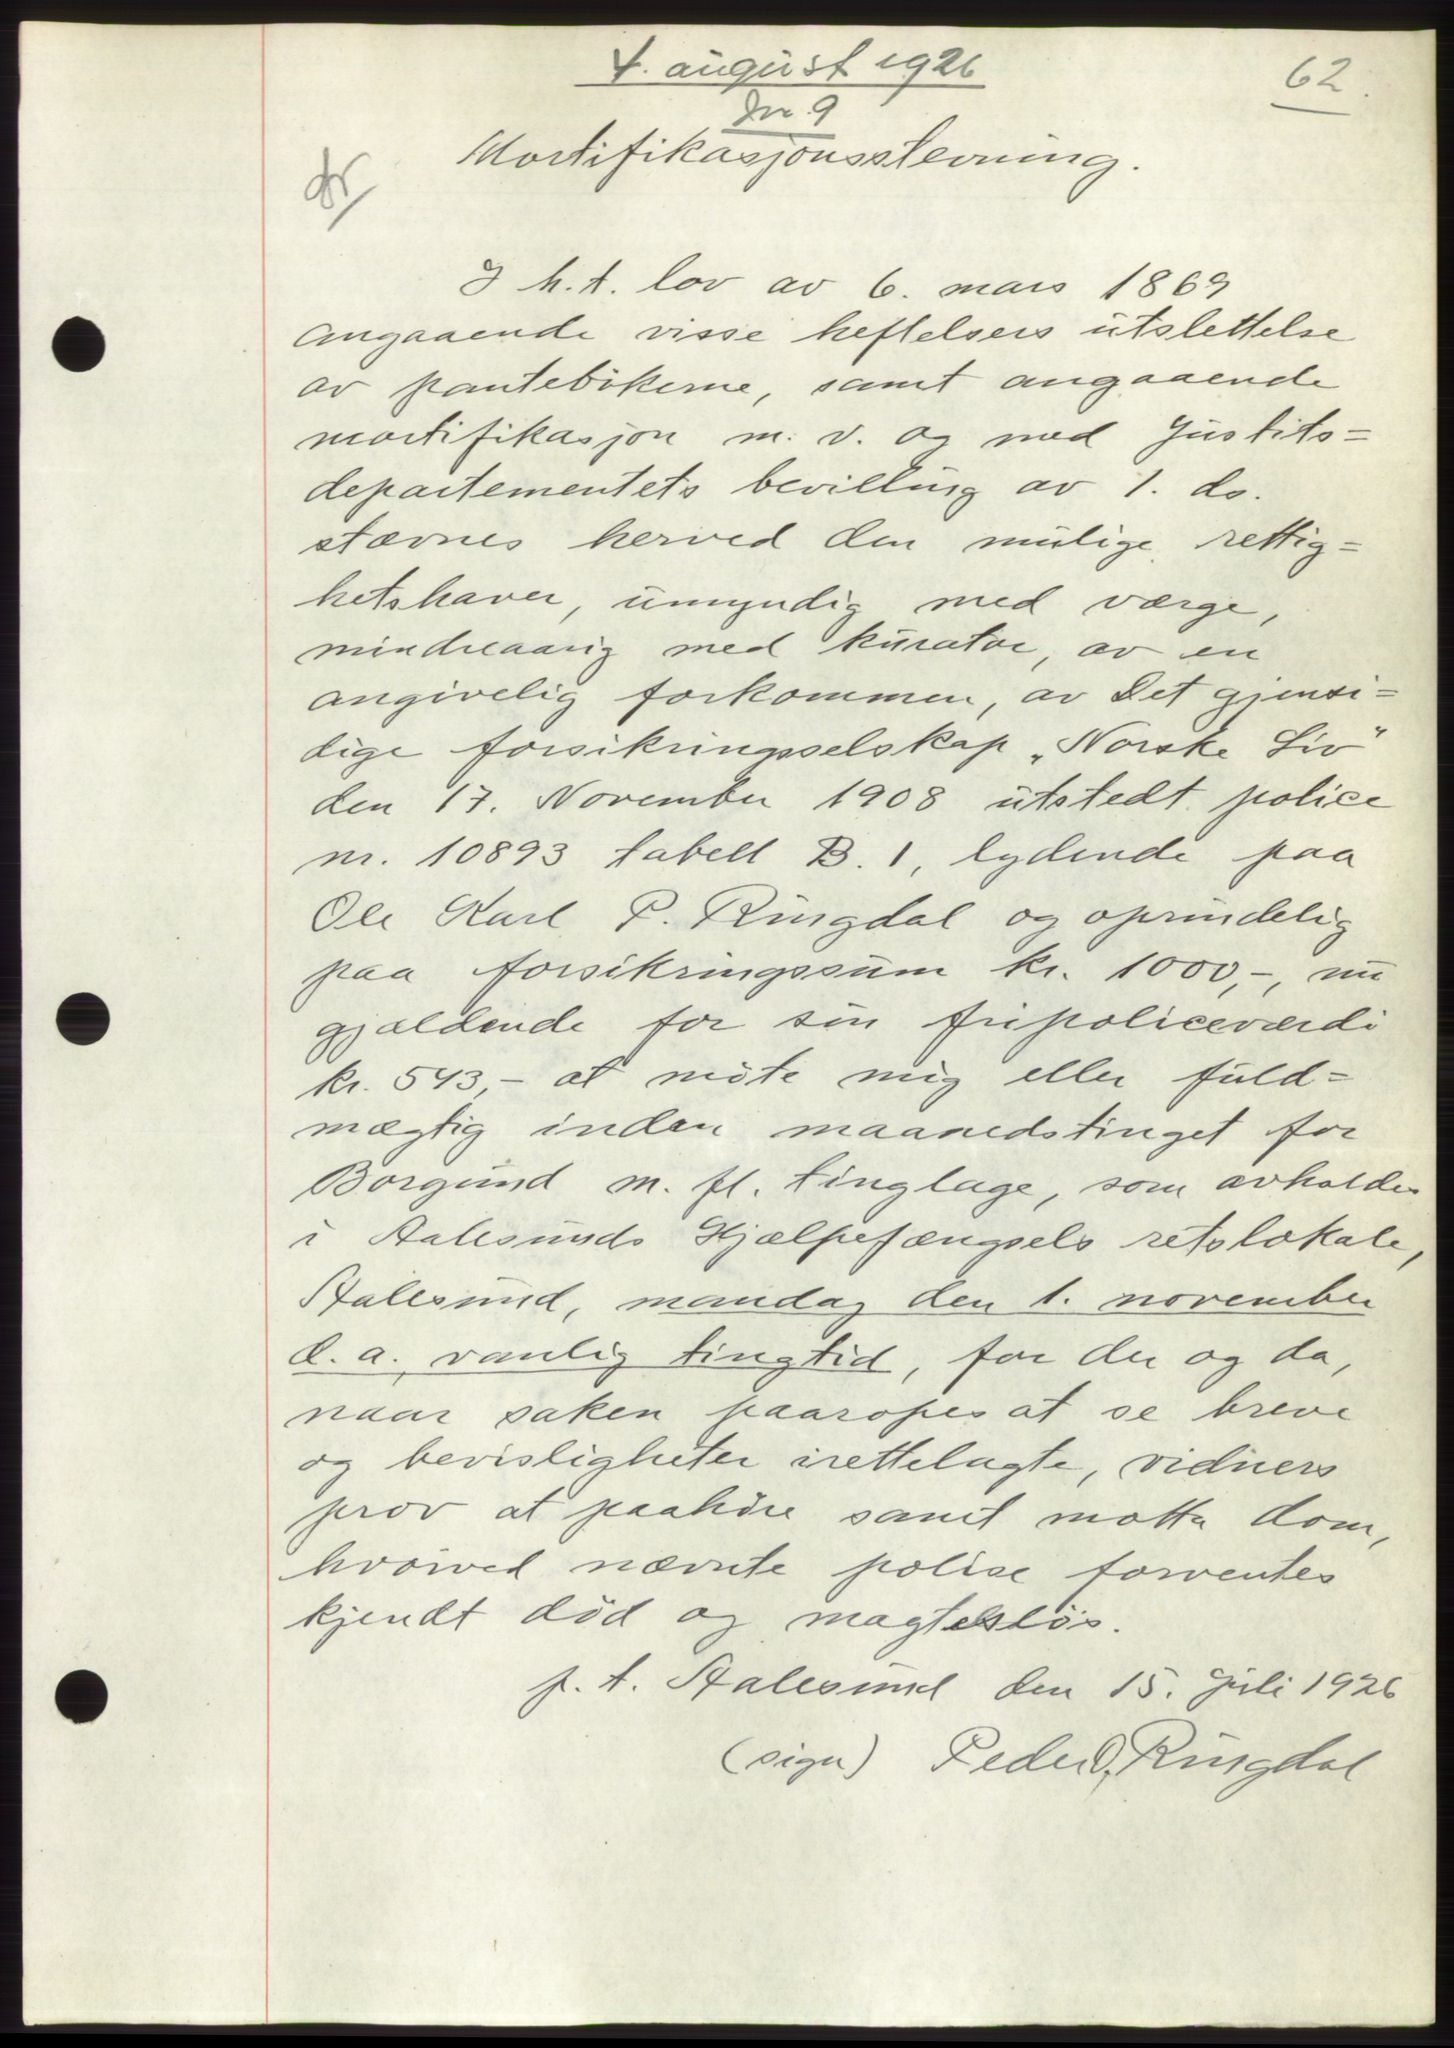 4. august 1926
62.
Jnr 9
Mortifikasjonsstevning.
I h.t. lov av 6. mars 1869
angaaende visse heftelsers utslettelse
av pantebökerne, samt angaaende
mortifikasjon m. v. og med Justits=
departementets bevilling av 1. ds.
stævnes herved den mulige rettig=
hetshaver, umyndig med værge,
mindreaarig med kurator, av en
angivelig forkommen, av Det gjensi=
dige forsikringsselskap „Norske Liv"
den 17. November 1908 utstedt police
nr. 10893 tabell B. 1, lydende paa
Ole Karl P. Ringdal og oprindelig
paa forsikringssum kr. 1000,-, nu
gjældende for sin fripoliceværdi
kr. 543,- at möte mig eller fuld=
mægtig inden maanedstinget for
Borgund m. fl. tinglage, som avholdes
i Aalesunds Hjælpefængsels retslokale,
Aalesund, mandag den 1. november
d. a. vanlig tingtid, for der og da,
naar saken paaropes at se breve
og bevisligheter irettelagte, vidners
prov at paahöre samt motta dom,
hvorved nævnte polise forventes
kjendt död og magteslös.
p. t. Aalesund den 15. Juli 1926
(sign) Peder O. Ringdal